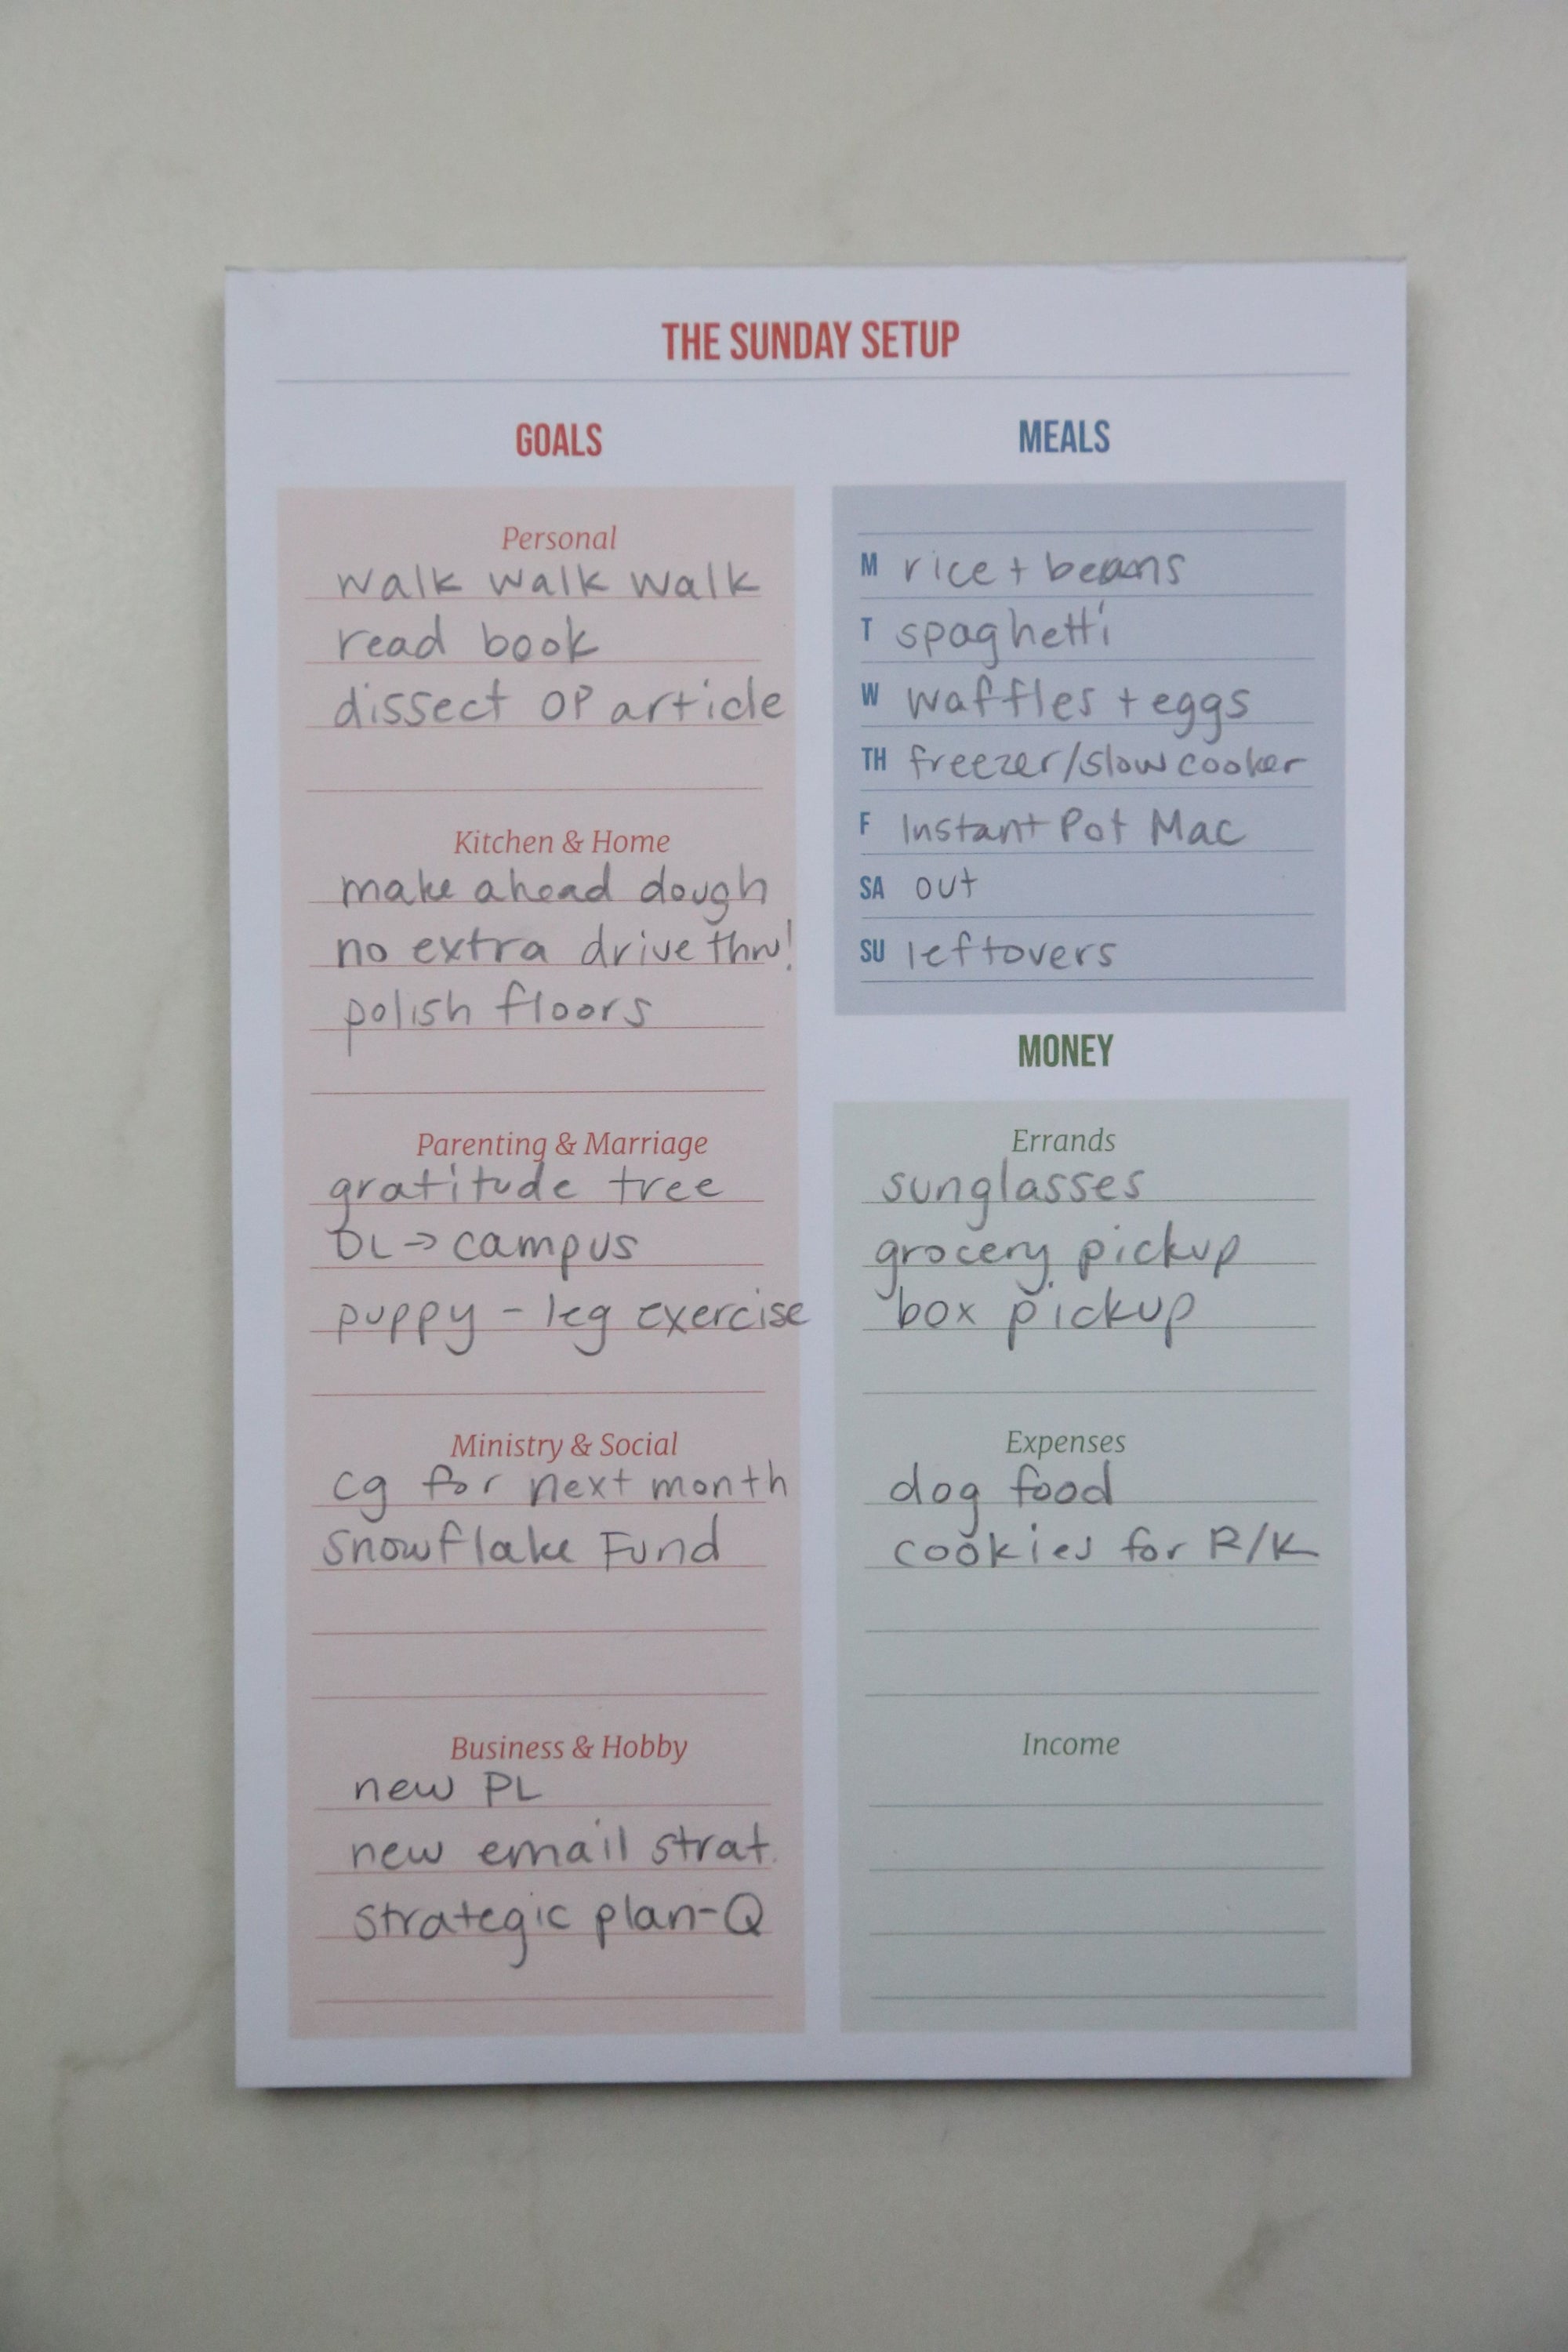 THE SUNDAY SETUP
GOALS
Personal
walk walk walk
read book
dissect OP article
Kitchen & Home
make ahead dough
no extra drive thru!
polish floors
Parenting & Marriage
gratitude tree
DL → campus
puppy - leg exercise
Ministry & Social
cg for next month
Snowflake Fund
Business & Hobby
new PL
new email strat.
strategic plan-Q
MEALS
M rice + beans
T spaghetti
W waffles + eggs
TH freezer/slow cooker
F Instant Pot Mac
SA out
SU leftovers
MONEY
Errands
sunglasses
grocery pickup
box pickup
Expenses
dog food
cookies for R/K
Income